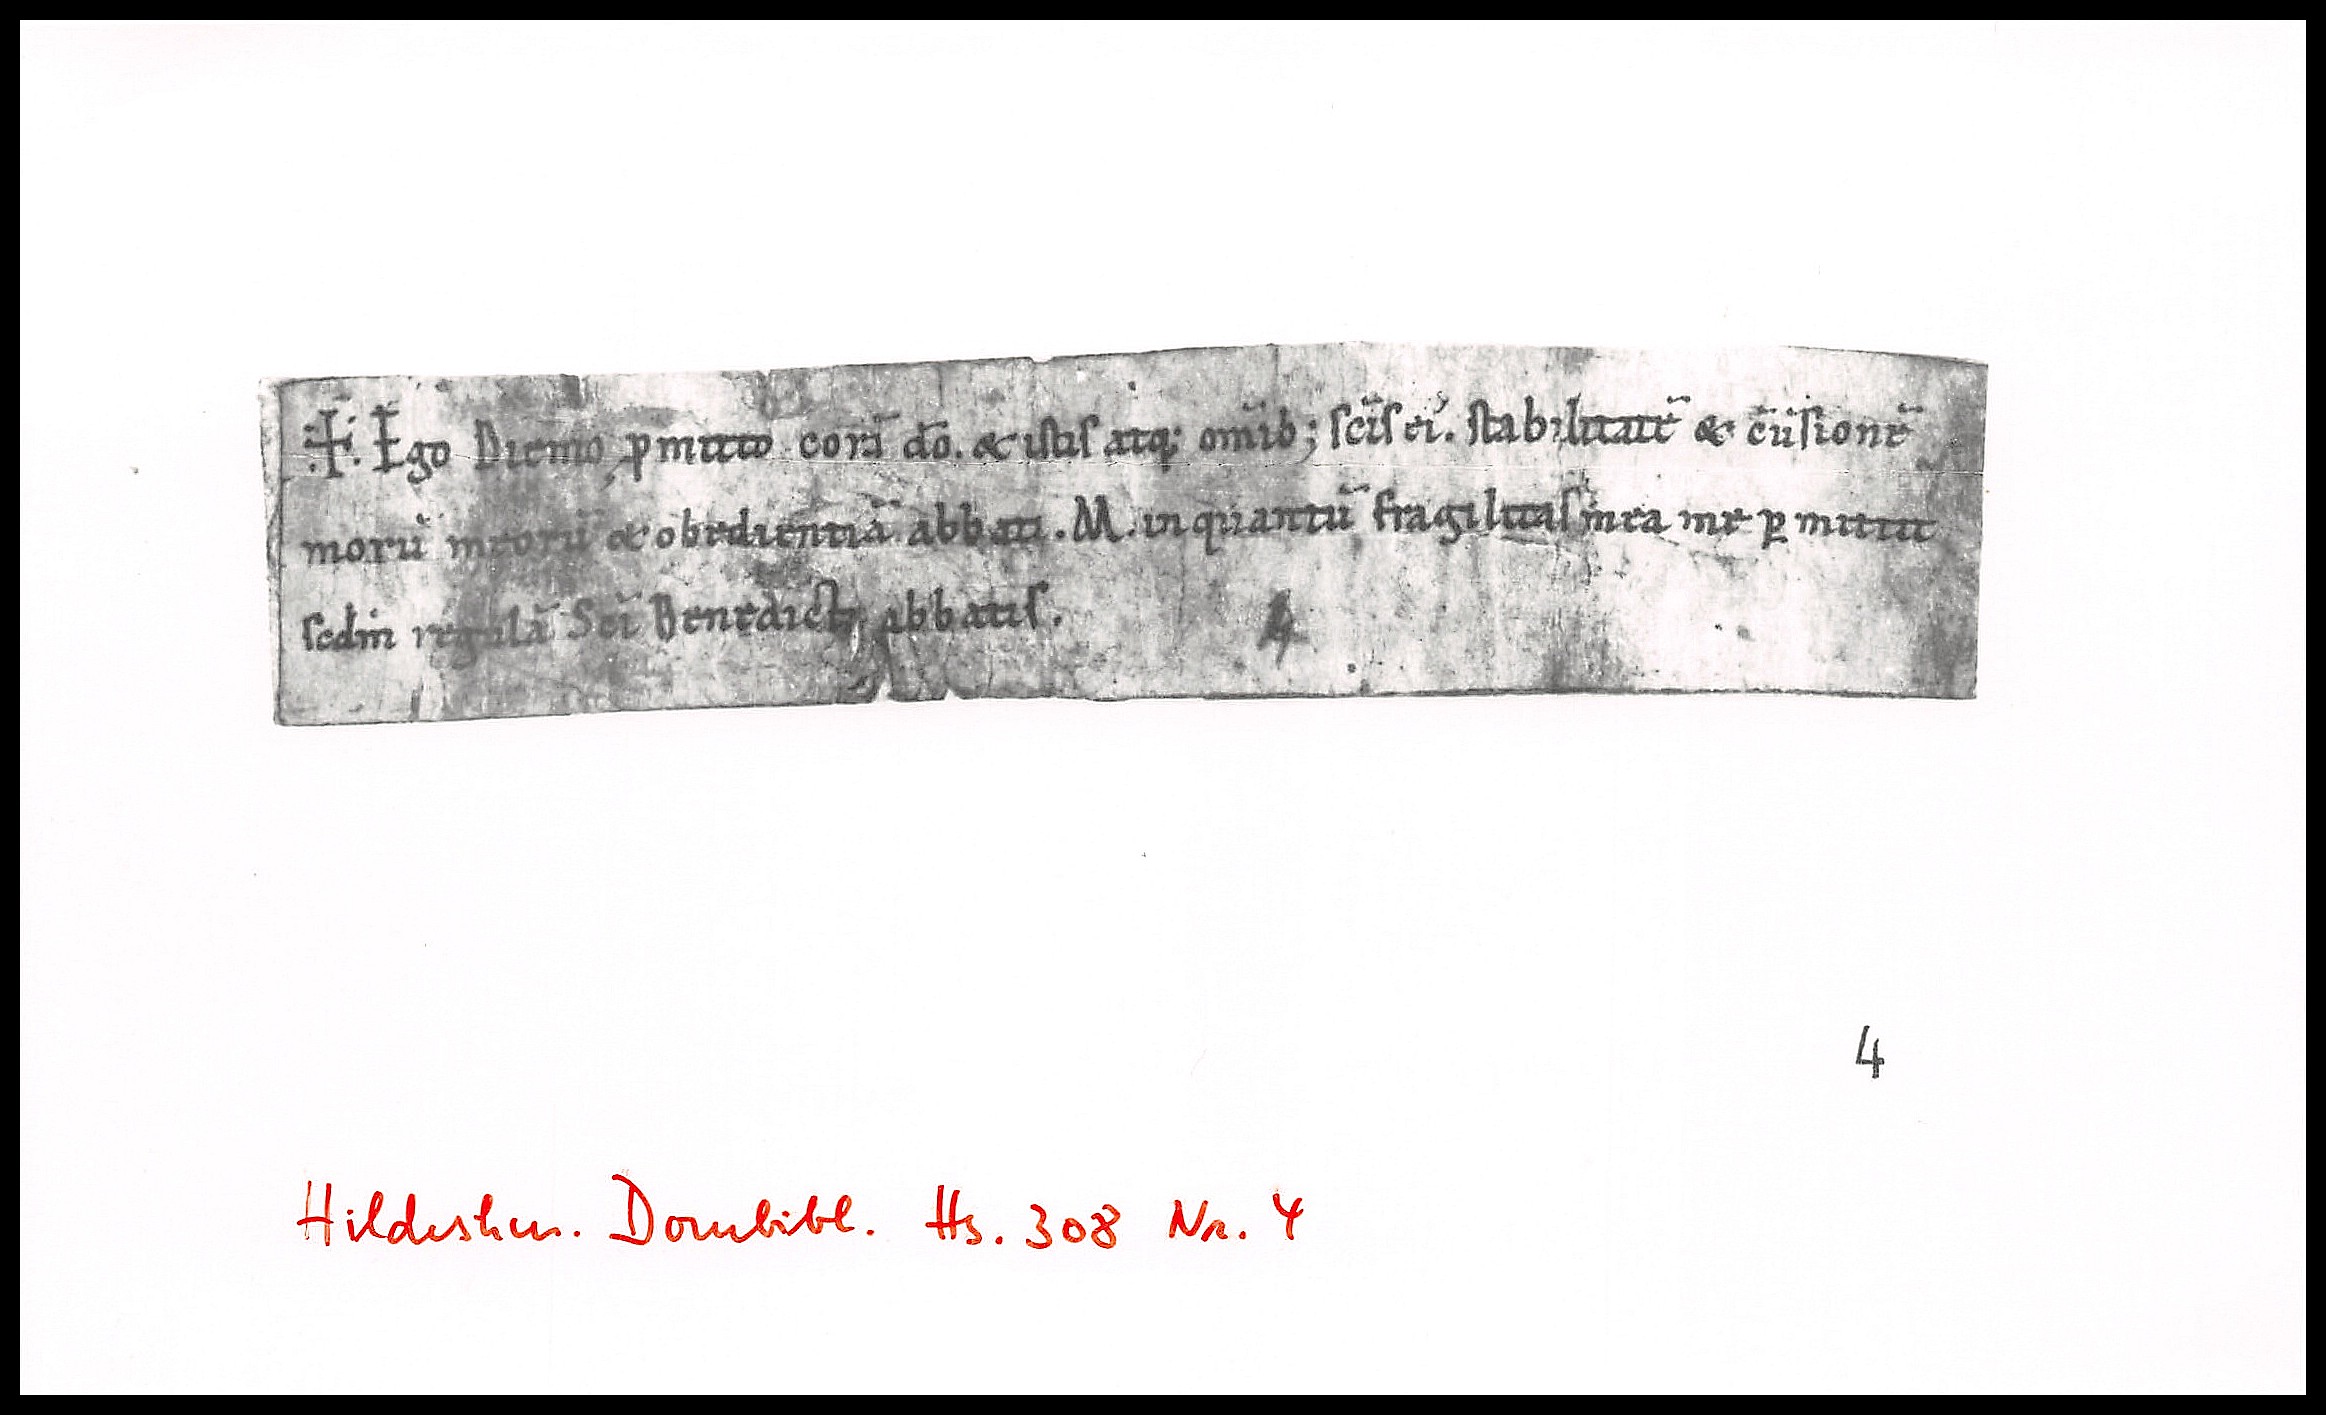 ☩ Ego Diemo ꝓmitto corā dō. & istis atq; om̄ib; sc̄is ei᾽. stabilitatē & c̄ūsionē
morū meorū & obedientiā abbati. M. in quantū fragilitas mea me ꝑmittit
scdm̄ regulā Sc̄i Benedicti abbatis.
4
4
Hildeshm. Dombibl. Hs. 308 Nr. 4